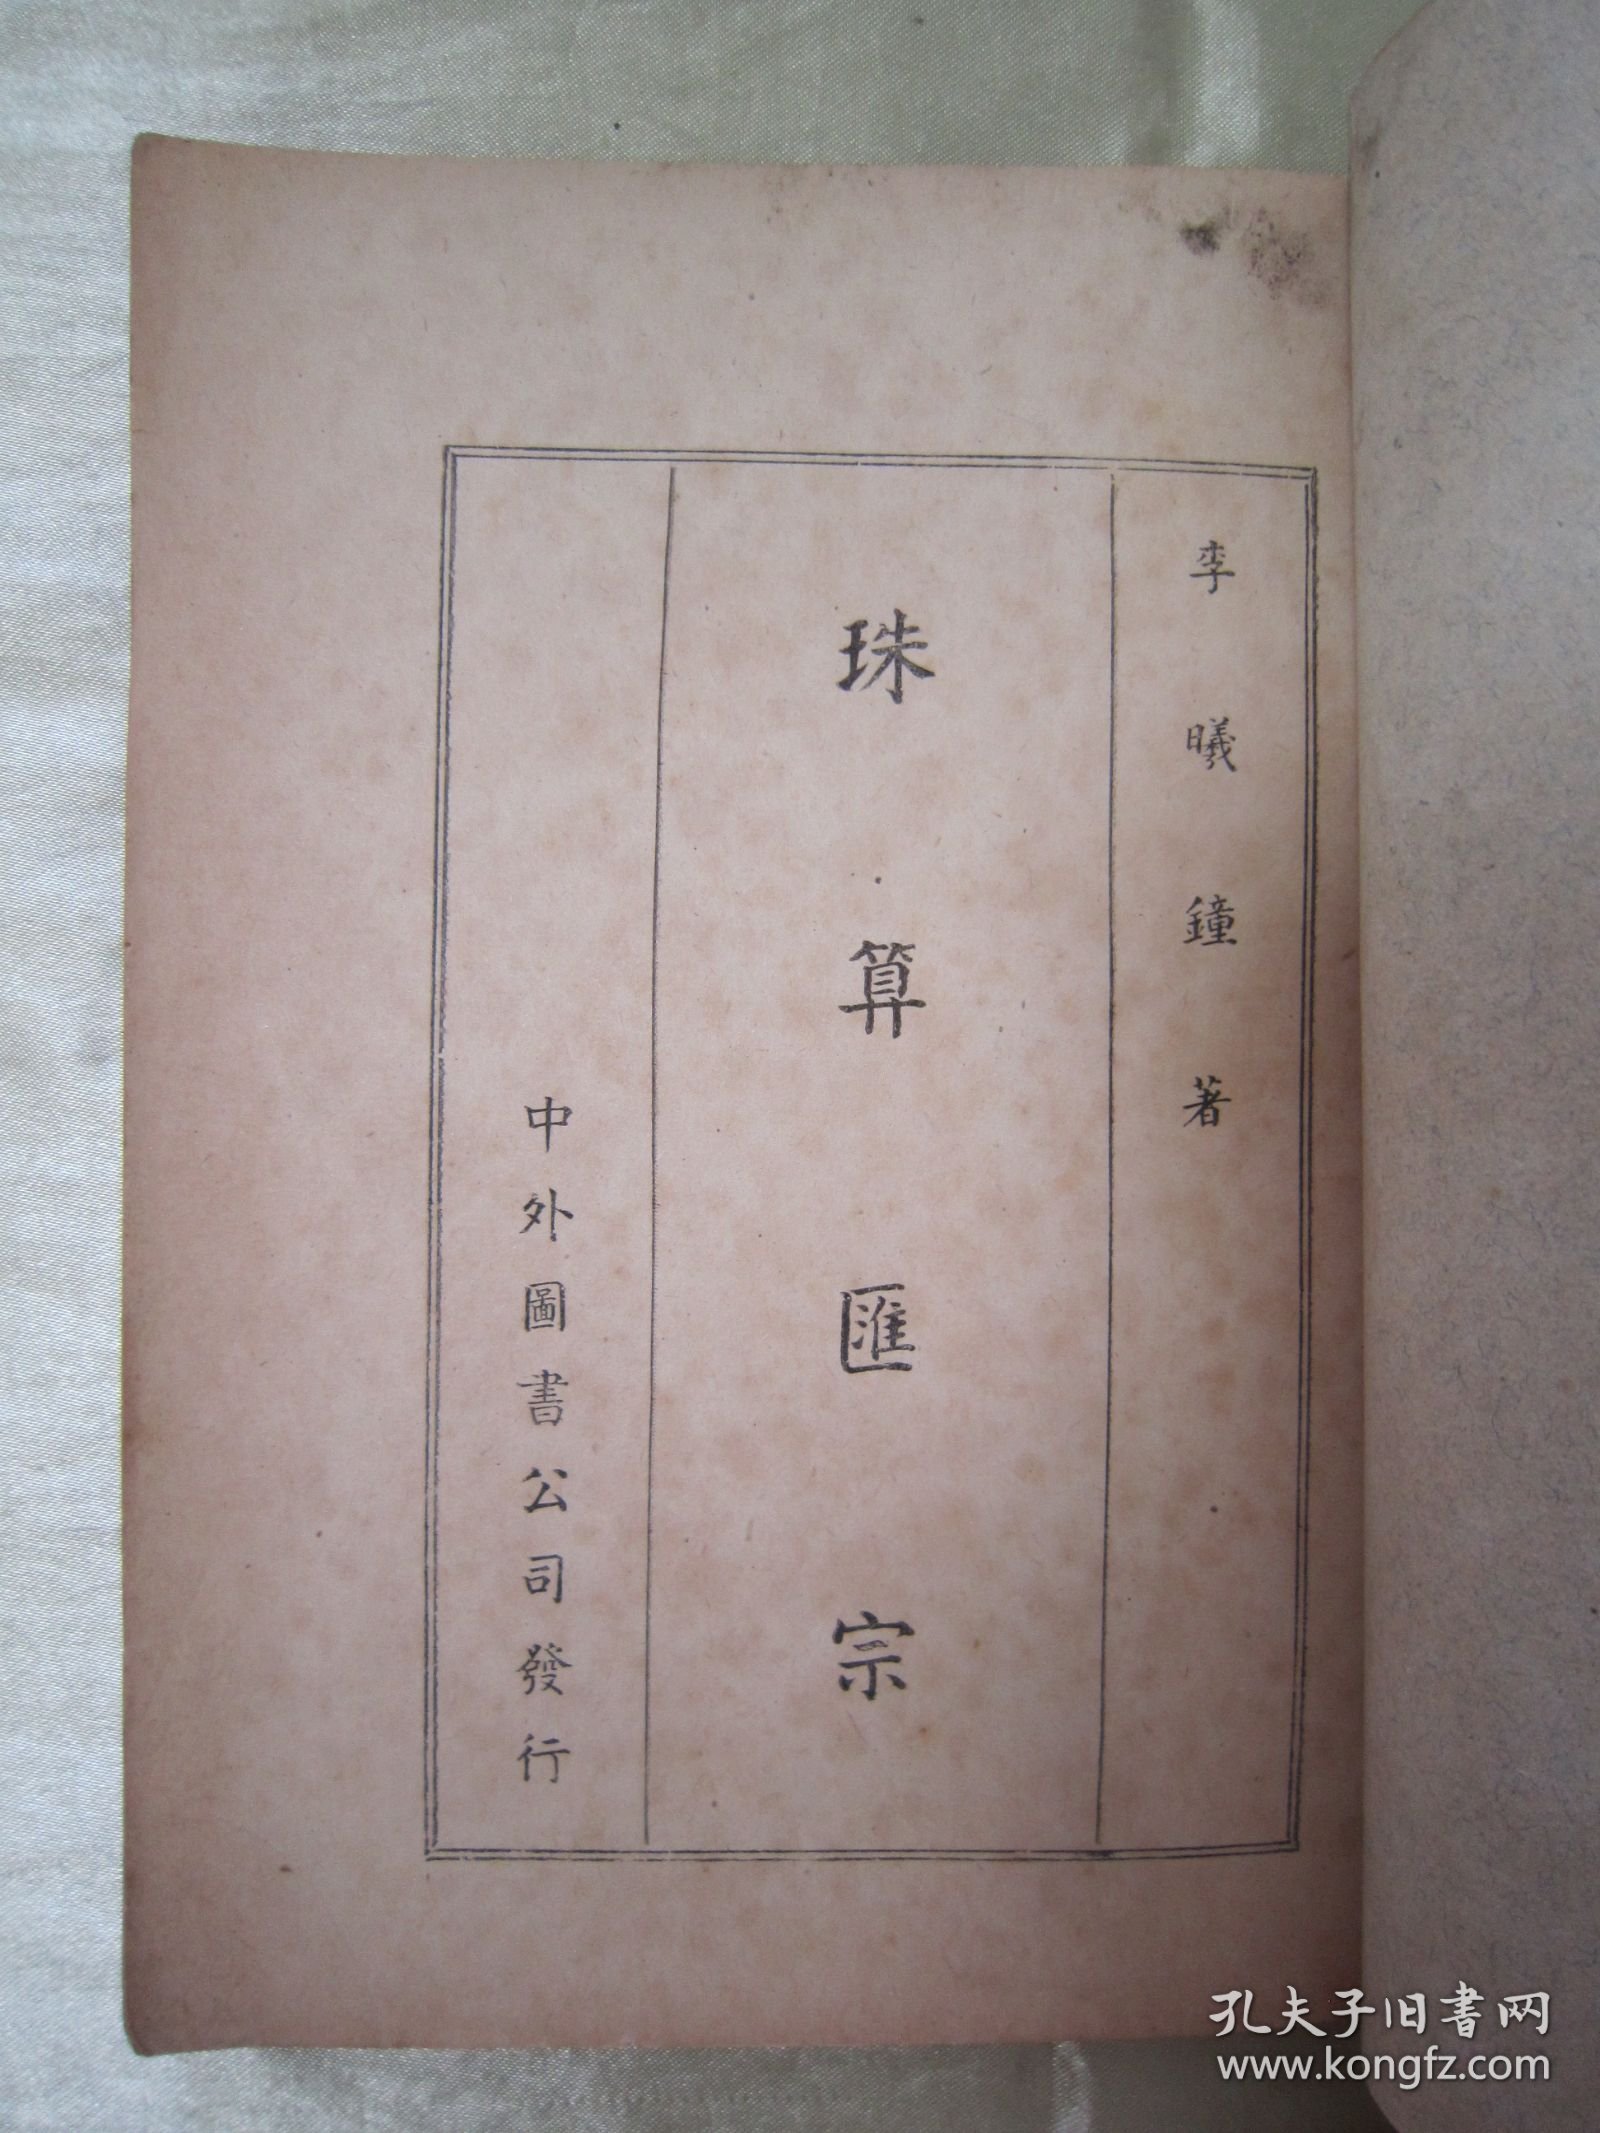 李曦鐘著
珠算匯宗
中外圖書公司發行
孔夫子旧书网
www.kongfz.com